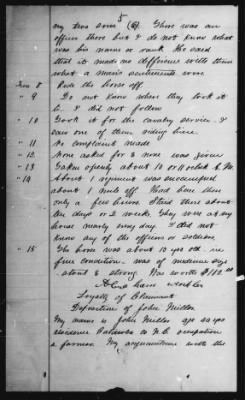 5
my two sons (6). There was an
officer there but I do not know what
was his name or rank. He said
that it made no difference with them
what a man's sentiments were
Ans 8 Rode the horse off
" 9 Do not know where they took it
to. I did not follow
" 10 Took it for the cavalry service. I
saw one of them riding him.
" 11 No complaint made
" 12 None asked for & none was given
" 13 Taken openly about 10 or 11 oclock A.M.
" 14 About 1 regiment was encamped
about 1 mile off. Had been there
only a few hours. Staid there about
ten days or 2 weeks. They were at my
house nearly every day. I did not
know any of the officers or soldiers.
" 15 The horse was about 10 yrs old in
fine condition. was of medium size
stout & strong. Was worth $
Loyalty of Claimant
Deposition of John Miller
My name is John Miller age 40 yrs
residence Davidson Co N.C. occupation
a farmer. My acquaintance with the